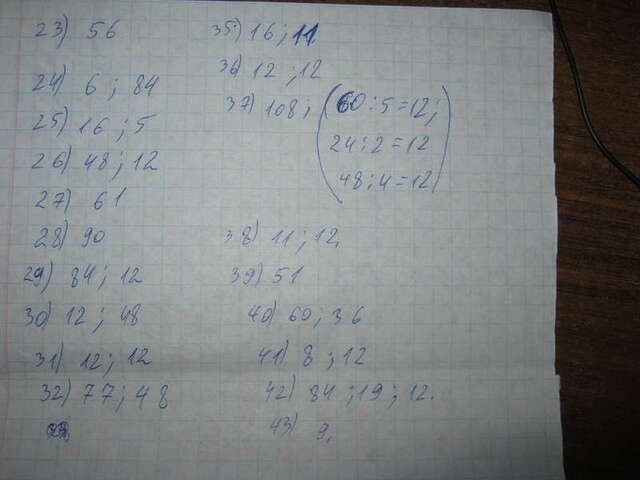 23) 56
24) 6 ; 84
25) 16 ; 5
26) 48 ; 12
27) 61
28) 90
29) 84 ; 12
30) 12 ; 48
31) 12 ; 12
32) 77 ; 48
35) 16 ; 11
36) 12 ; 12
37) 108 ; (60 : 5 = 12;
24 : 2 = 12
48 : 4 = 12)
38) 11 ; 12.
39) 51
40) 60 ; 36
41) 8 ; 12
42) 84 ; 19 ; 12.
43) 9.